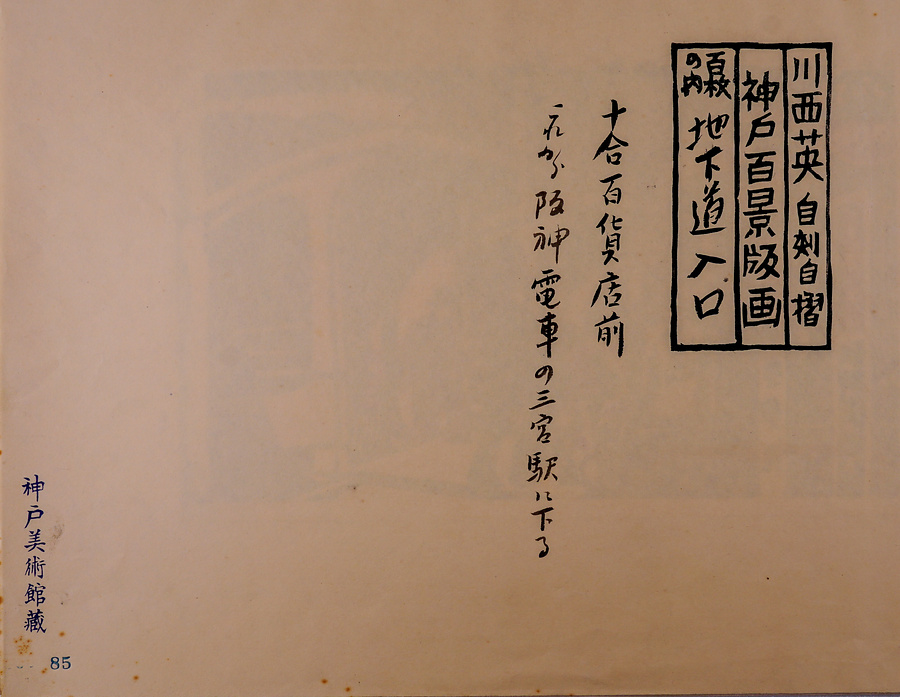 川西英 自刻自摺
神戸百景版画
百枚の内 地下道入口
十合百貨店前
阪神電車の三宮駅に下る
神戸美術館蔵
85